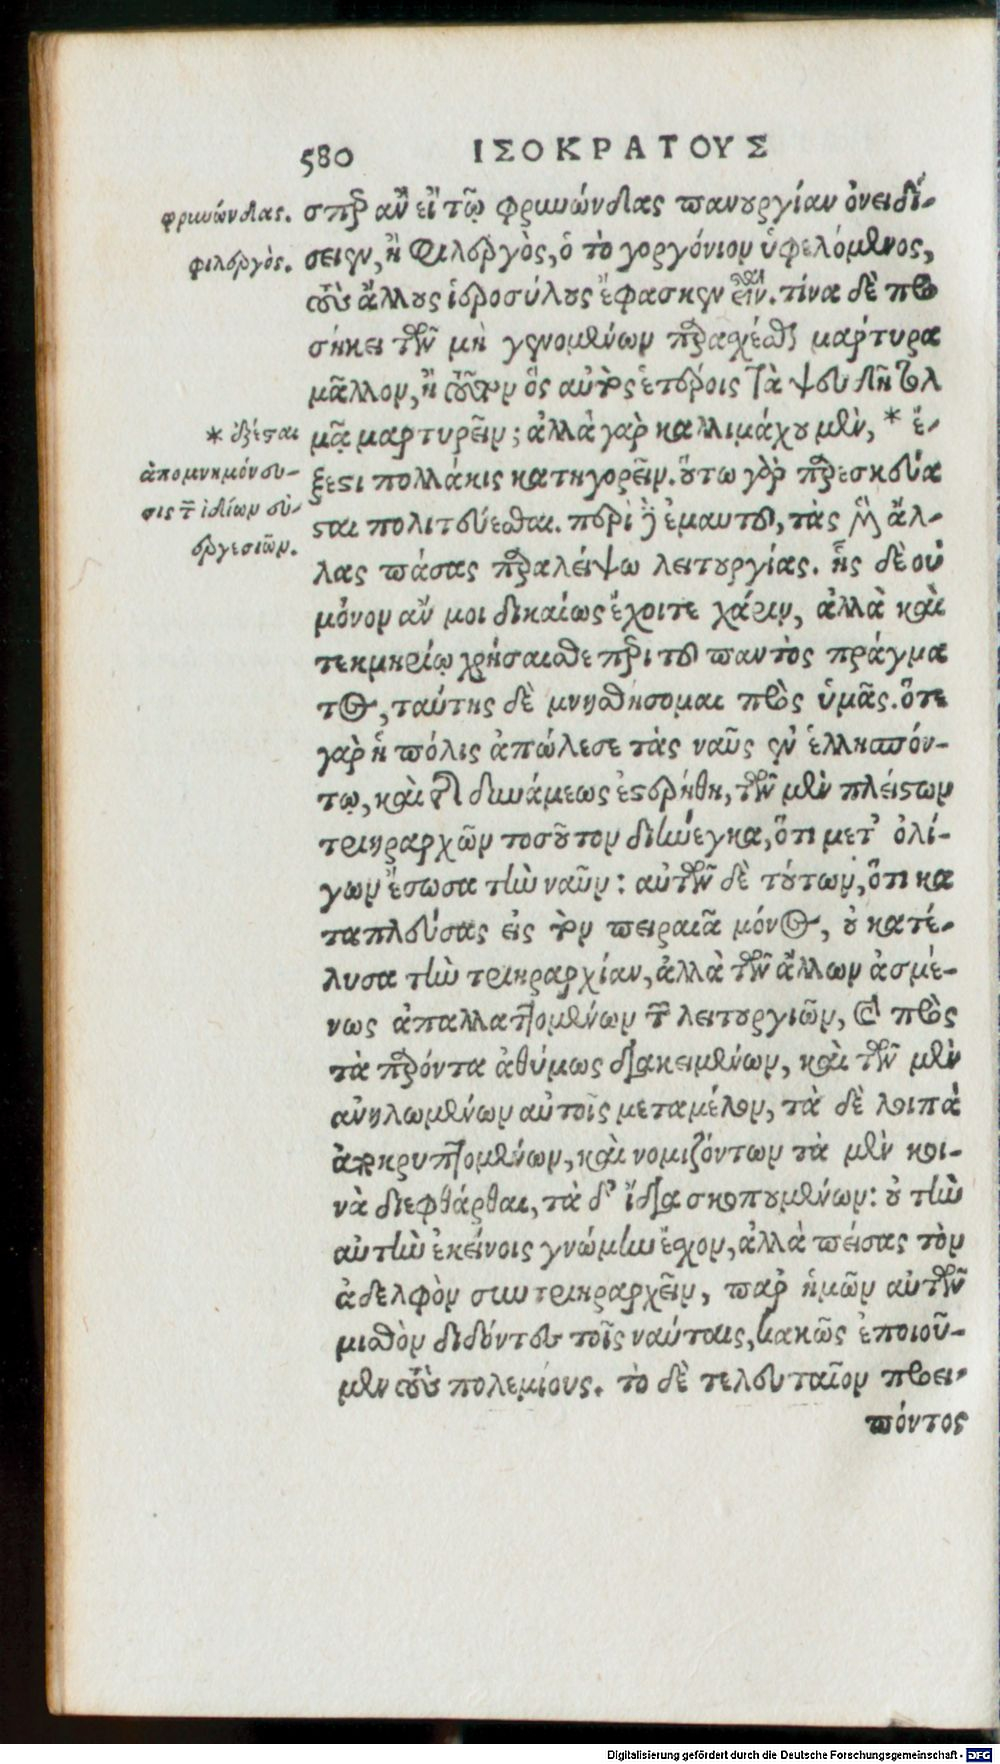 580 ΙΣΟΚΡΑΤΟΥΣ
φρυνώνδας. σπερ ἂν εἴ τῳ φρυνώνδας πανουργίαν ὀνειδί-
φιλεργὸς. σειεν, ἢ Φιλεργὸς, ὁ τὸ γοργόνιον ὑφελόμενος,
τοὺς ἄλλους ἱεροσύλους ἔφασκεν εἶναι. τίνα δὲ προ
σήκει τῶν μὴ γενομένων παρασχέσθαι μάρτυρα
μᾶλλον, ἢ τοῦτον ὃς αὐτὸς ἑτέροις τὰ ψευδῆ τολ
μᾷ μαρτυρεῖν; ἀλλὰ γὰρ καλλιμάχου μὲν, * ἔ-
* ἐξέσται
ξεστι πολλάκις κατηγορεῖν. οὕτω γὰρ παρεσκεύα
ἀπομνημόνευ-
σται πολιτεύεσθαι. περὶ δὲ ἐμαυτοῦ, τὰς μὲν ἄλ-
σις τῶν ἰδίων εὐ-
λας πάσας παραλείψω λειτουργίας. ἧς δὲ οὐ
εργεσιῶν.
μόνον ἄν μοι δικαίως ἔχοιτε χάριν, ἀλλὰ καὶ
τεκμηρίῳ χρήσαισθε περὶ τοῦ παντὸς πράγμα
τος, ταύτης δὲ μνησθήσομαι πρὸς ὑμᾶς. ὅτε
γὰρ ἡ πόλις ἀπώλεσε τὰς ναῦς ἐν ἑλλησπόν-
τῳ, καὶ τῆς δυνάμεως ἐστερήθη, τῶν μὲν πλείστων
τριηραρχῶν τοσοῦτον διήνεγκα, ὅτι μετ' ὀλί-
γων ἔσωσα τὴν ναῦν: αὐτῶν δὲ τούτων, ὅτι κα
ταπλεύσας εἰς τὸν πειραιᾶ μόνος, οὐ κατέ-
λυσα τὴν τριηραρχίαν, ἀλλὰ τῶν ἄλλων ἀσμέ-
νως ἀπαλλαττομένων τῶν λειτουργιῶν, καὶ πρὸς
τὰ παρόντα ἀθύμως διακειμένων, καὶ τῶν μὲν
ἀνηλωμένων αὐτοῖς μεταμέλον, τὰ δὲ λοιπὰ
ἀποκρυπτομένων, καὶ νομιζόντων τὰ μὲν κοι-
νὰ διεφθάρθαι, τὰ δ' ἴδια σκοπουμένων: οὐ τὴν
αὐτὴν ἐκείνοις γνώμην ἔχον, ἀλλὰ πείσας τὸν
ἀδελφὸν συντριηραρχεῖν, παρ' ἡμῶν αὐτῶν
μισθὸν διδόντες τοῖς ναύταις, κακῶς ἐποιοῦ-
μεν τοὺς πολεμίους. τὸ δὲ τελευταῖον προει-
πόντος
Digitalisierung gefördert durch die Deutsche Forschungsgemeinschaft - DFG